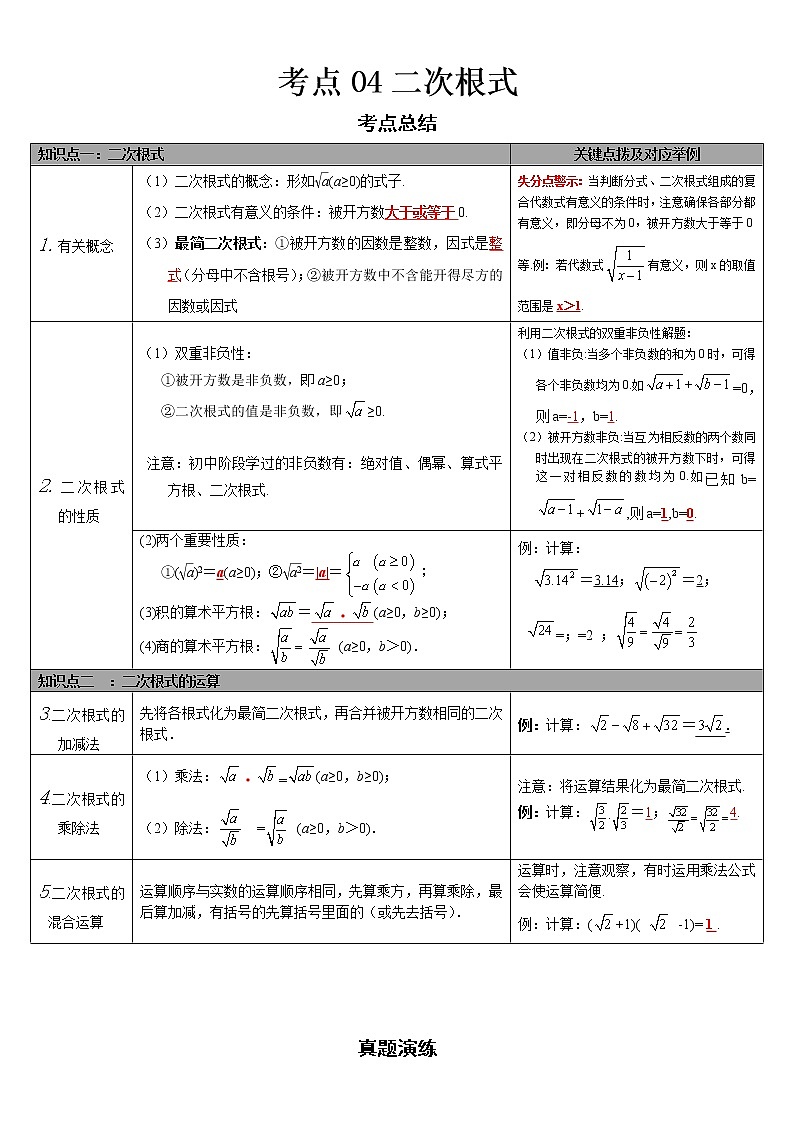 考点 04 二次根式
考点总结
知识点一：二次根式
关键点拨及对应举例
1. 有关概念
（1）二次根式的概念：形如√a(a≥0)的式子.
（2）二次根式有意义的条件：被开方数大于或等于 0.
（3）最简二次根式：①被开方数的因数是整数，因式是整
式(分母中不含根号)；②被开方数中不含能开得尽方的
因数或因式
失分点警示：当判断分式、二次根式组成的复
合代数式有意义的条件时，注意确保各部分都
有意义，即分母不为 0，被开方数大于等于 0
等.例：若代数式√(1/(x−1))有意义，则 x 的取值
范围是 x＞1.
2. 二次根式
的性质
（1）双重非负性：
①被开方数是非负数，即 a≥0；
②二次根式的值是非负数，即√a≥0.
注意：初中阶段学过的非负数有：绝对值、偶幂、算式平
方根、二次根式.
利用二次根式的双重非负性解题：
（1）值非负:当多个非负数的和为 0 时，可得
各个非负数均为 0.如√(a+1)+√(b−1)=0，
则 a=-1，b=1.
（2）被开方数非负:当互为相反数的两个数同
时出现在二次根式的被开方数下时，可得
这一对相反数的数均为 0.如已知 b=
√(a−1)+√(1−a),则 a=1,b=0.
(2)两个重要性质：
①(√a)²＝a(a≥0)；②√a²＝|a|＝{a (a≥0) −a (a<0)；
(3)积的算术平方根：√ab＝√a·√b(a≥0，b≥0)；
(4)商的算术平方根：√(a/b)=√a/√b (a≥0，b＞0)．
例：计算：
√3.14²＝3.14；√(−2)²＝2；
√24=；=2 ；√(4/9)=√4/√9=2/3
知识点二 ：二次根式的运算
3.二次根式的
加减法
先将各根式化为最简二次根式，再合并被开方数相同的二次
根式．
例：计算：√2−√8+√32＝3√2.
4.二次根式的
乘除法
（1）乘法：√a·√b=√ab(a≥0，b≥0)；
（2）除法：√a/√b =√(a/b) (a≥0，b＞0)．
注意：将运算结果化为最简二次根式.
例：计算：√(3/2)·√(2/3)＝1；√32/√2=√(32/2)=4.
5.二次根式的
混合运算
运算顺序与实数的运算顺序相同，先算乘方，再算乘除，最
后算加减，有括号的先算括号里面的（或先去括号）．
运算时，注意观察，有时运用乘法公式
会使运算简便.
例：计算：(√2+1)( √2 -1)= 1 .
真题演练